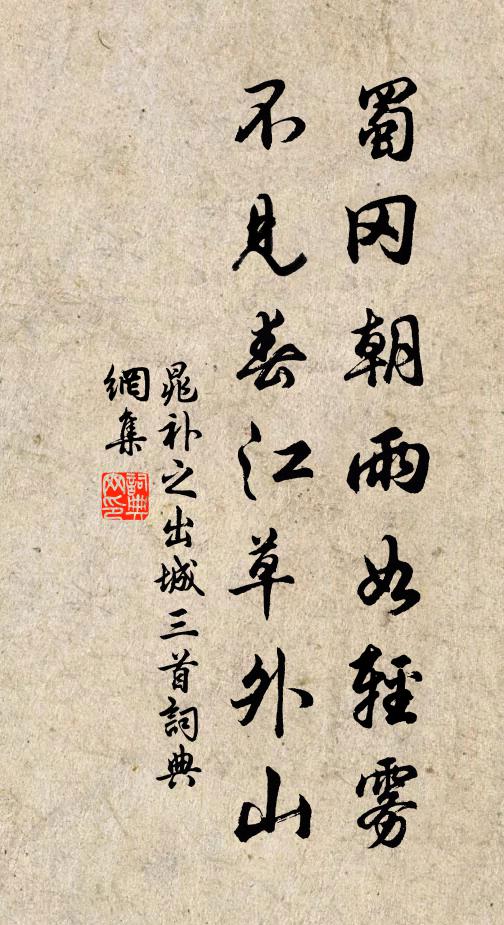 蜀冈朝雨如轻雾
不见春江草外山
晁补之出城三首词典
网集
词典网印